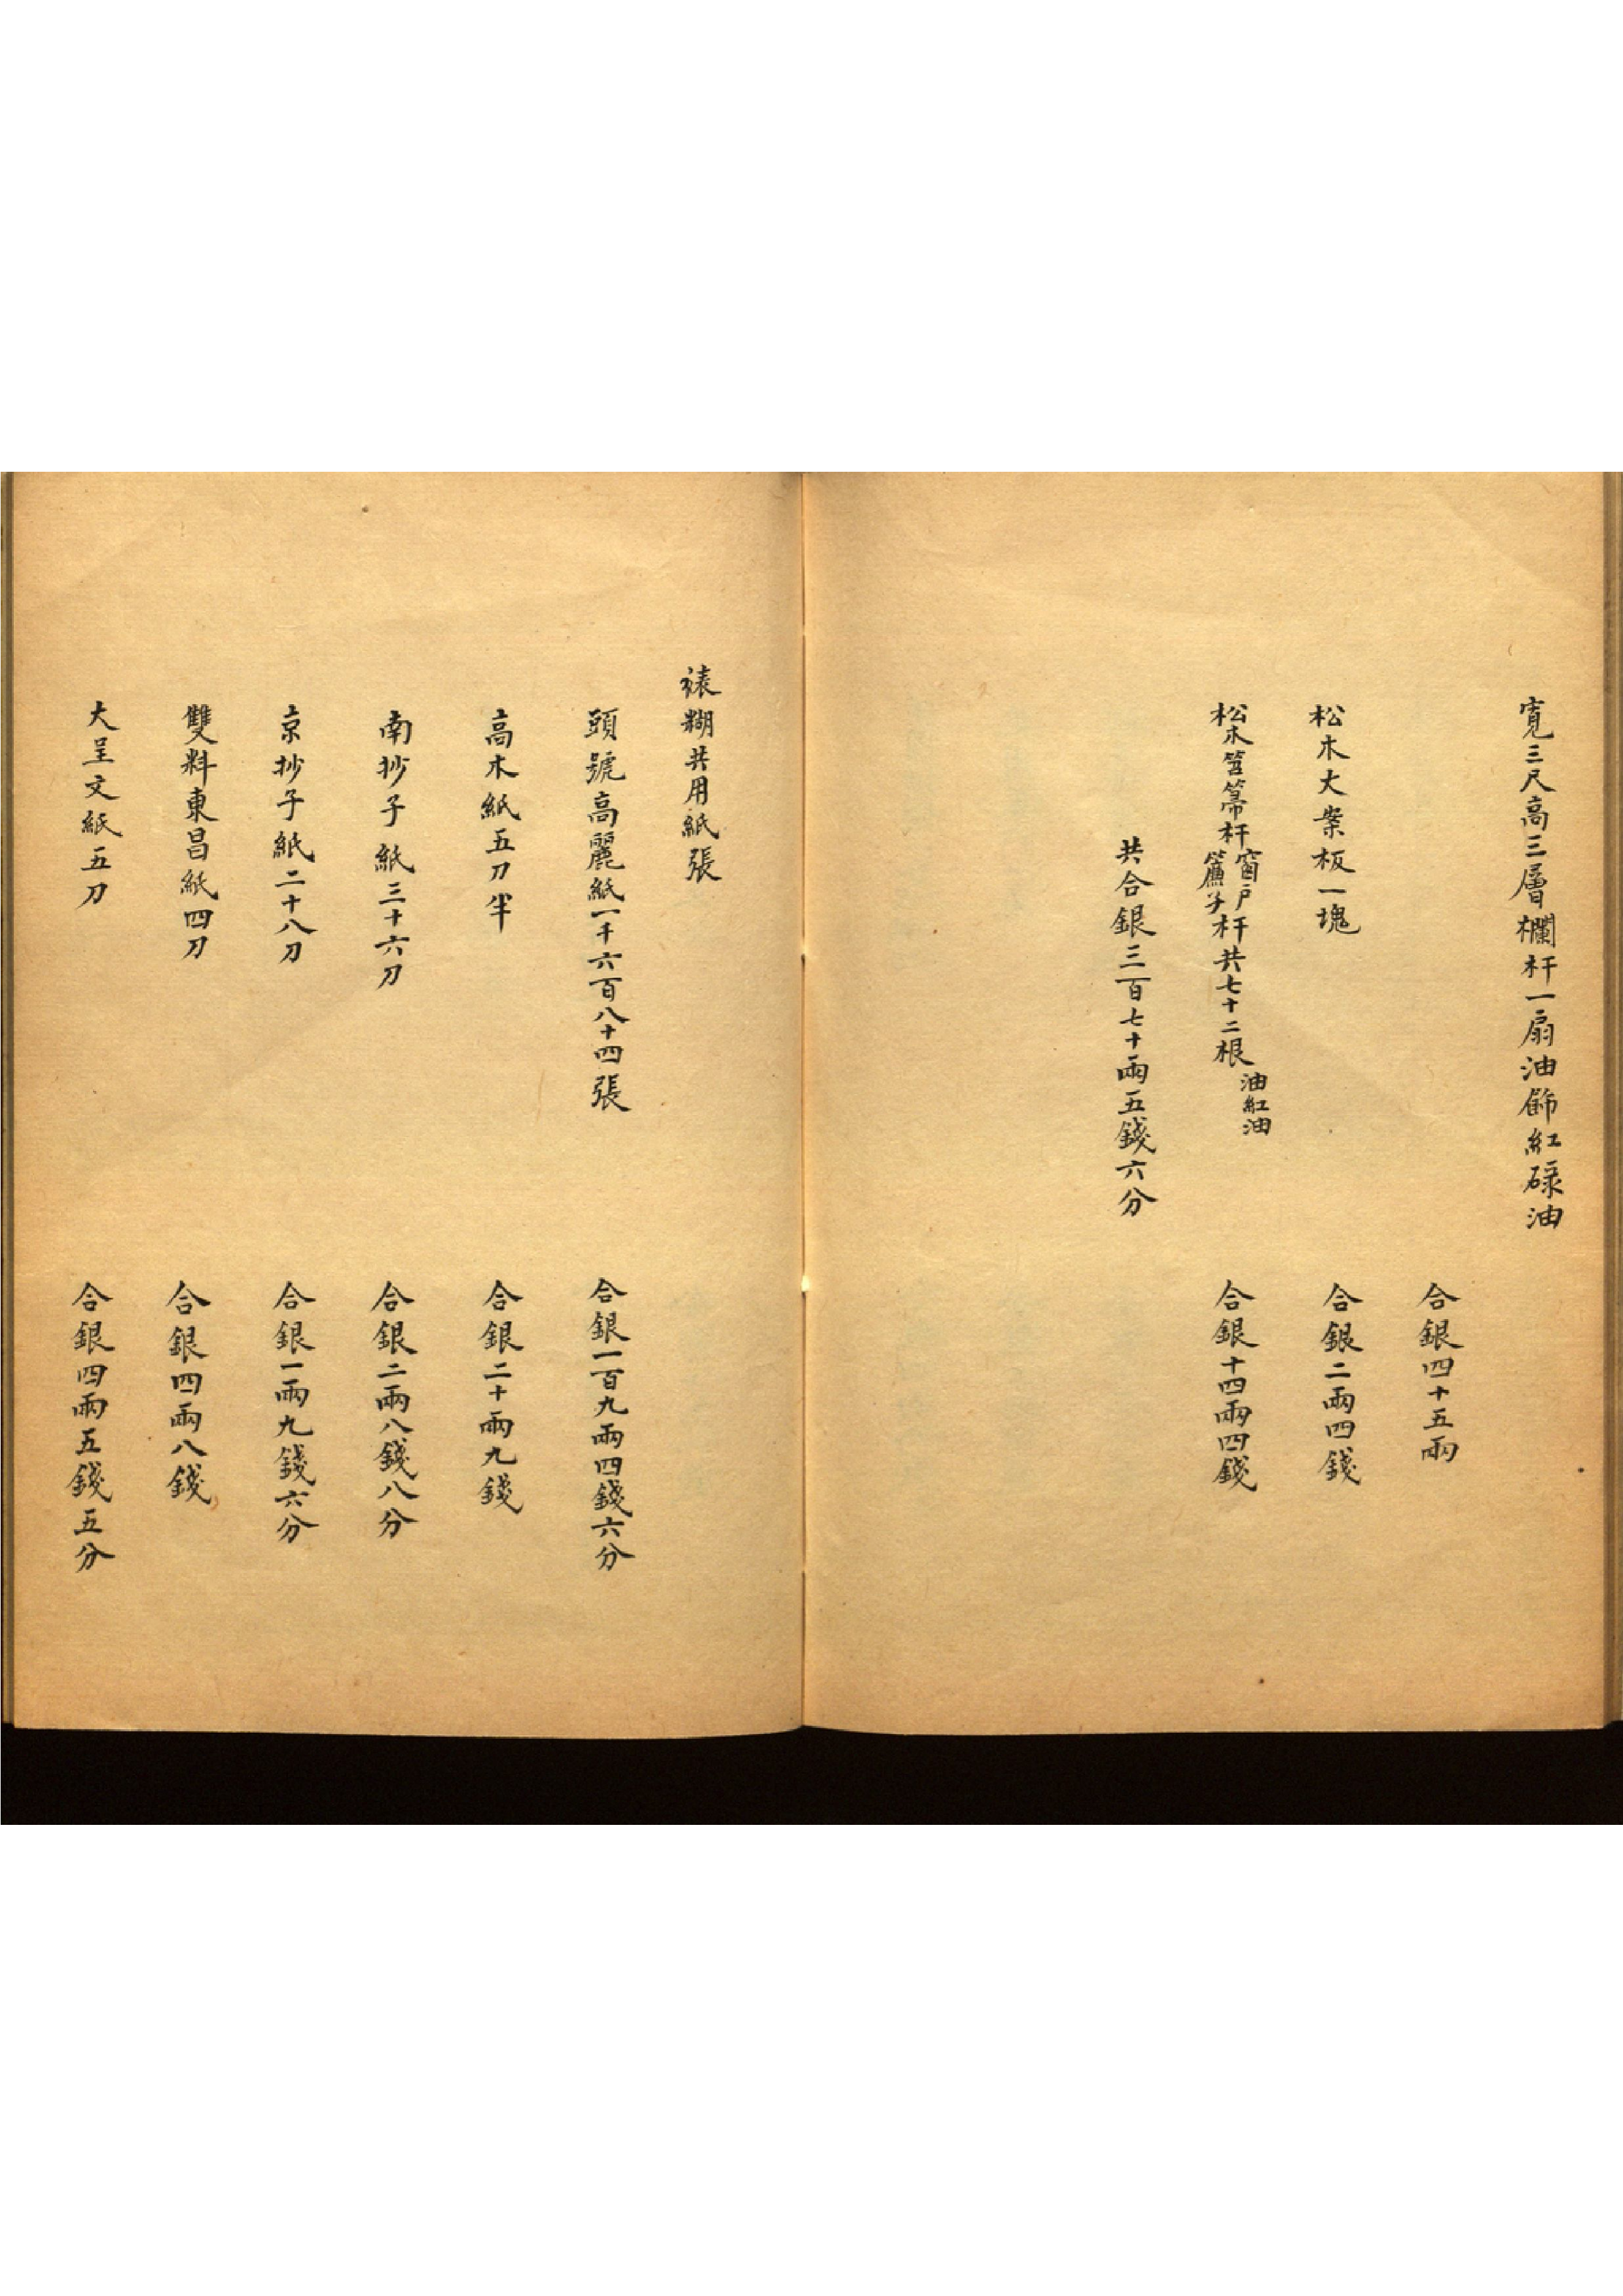 寬三尺高三層欄杆一扇油飾紅碌油
合銀四十五兩
松木大案板一塊
合銀二兩四錢
松木笤箒杆窗戶簾子杆共七十二根油紅油
合銀十四兩四錢
共合銀三百七十兩五錢六分
裱糊共用紙張
頭號高麗紙一千六百八十四張
合銀一百九兩四錢六分
高木紙五刀半
合銀二十兩九錢
南抄子紙三十六刀
合銀二兩八錢八分
京抄子紙二十八刀
合銀一兩九錢六分
雙料東昌紙四刀
合銀四兩八錢
大呈文紙五刀
合銀四兩五錢五分